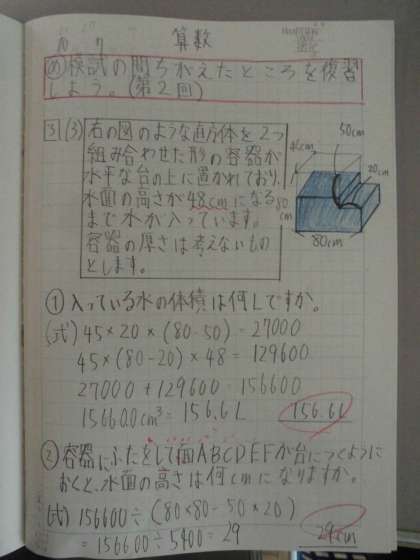 算数
め 模試の間ちがえたところを復習
しよう。(第2回)
3 (3) 右の図のような直方体を2つ
組み合わせた形の容器が
水平な台の上に置かれており、
水面の高さが48cmになる
まで水が入っています。
容器の厚さは考えないもの
とします。
50cm
20cm
80
cm
80cm
① 入っている水の体積は何Lですか。
(式) 45×20×(80-50)=27000
45×(80-20)×48=129600
27000+129600=156600
156600cm³=156.6L
156.6L
② 容器にふたをして面ABCDEFが台につくように
おくと、水面の高さは何cmになりますか。
(式) 156600÷(80×80-50×20)
=156600÷5400=29
29cm